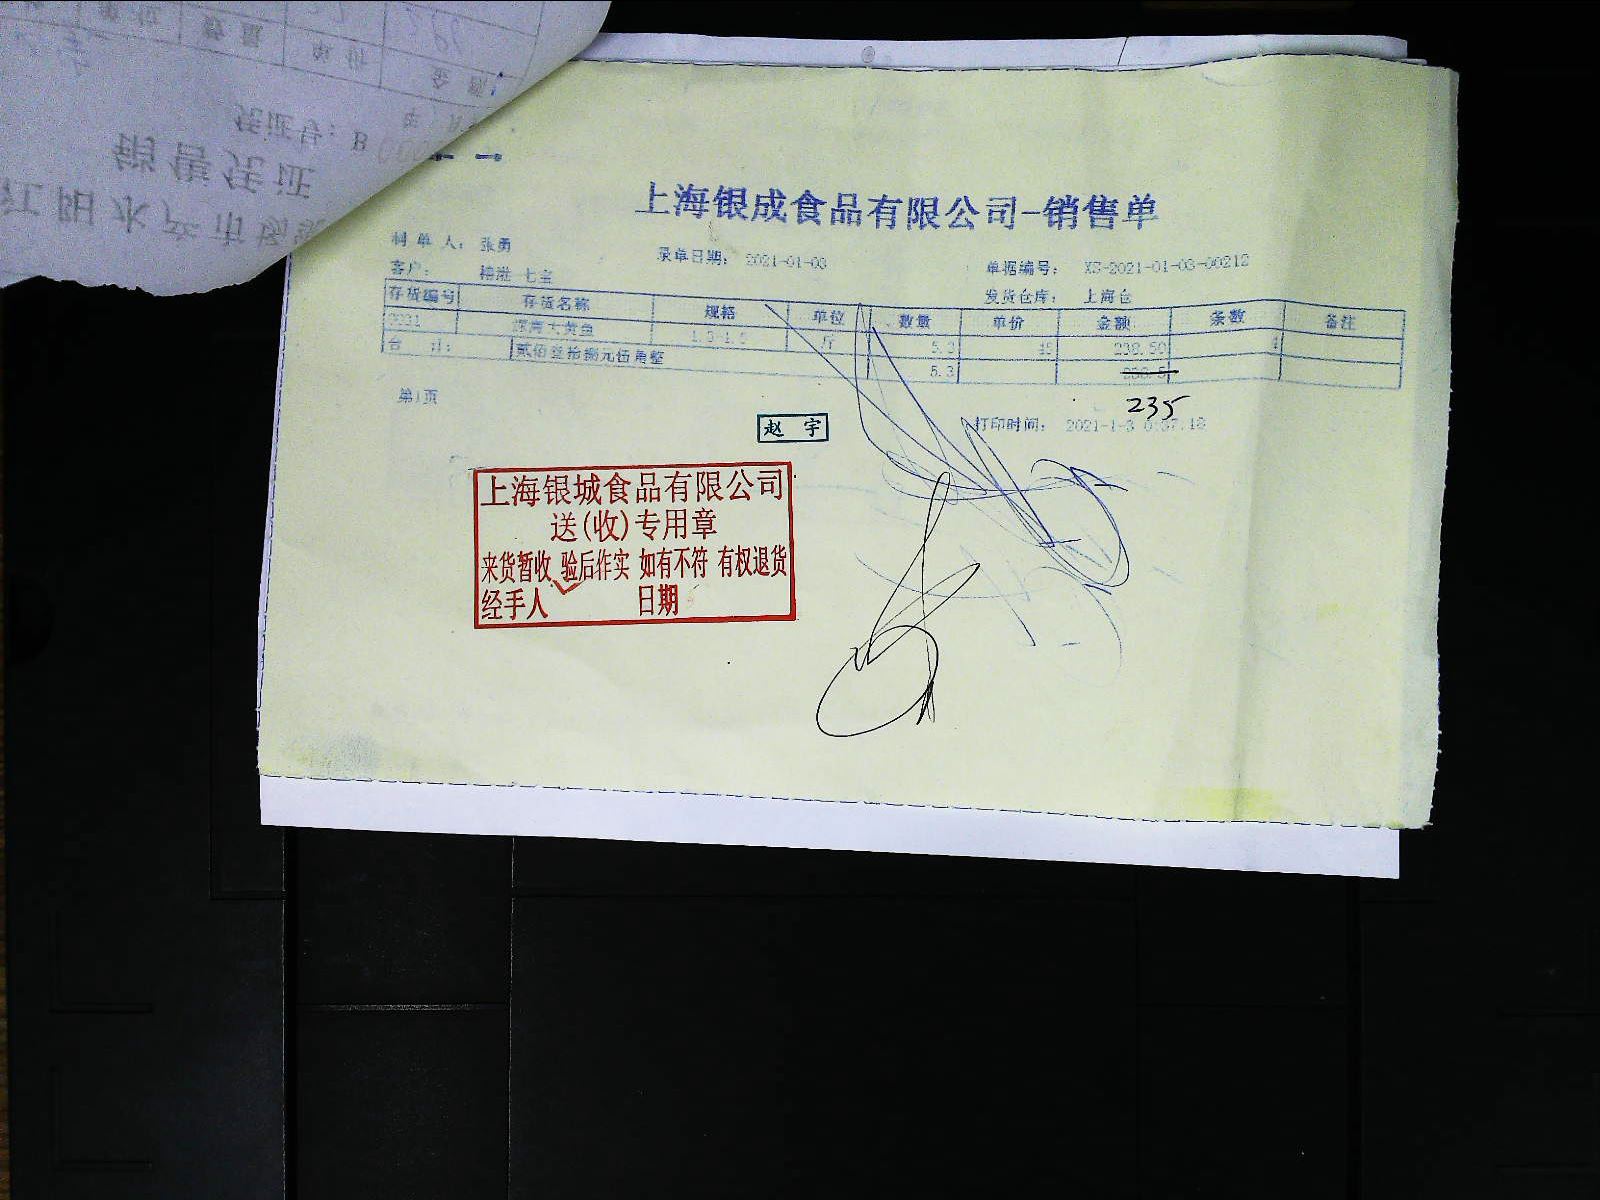 上海银成食品有限公司-销售单
制单人： 张勇 录单日期： 2021-01-03 单据编号： XS-2021-01-03-00212
客户： 七宝 发货仓库： 上海仓
存货编号 存货名称 规格 单位 数量 单价 金额 条数 备注
大黄鱼 斤 5.3 45 238.50 4
合计： 贰佰叁拾捌元伍角整 5.3 238.5
235
第1页 打印时间： 2021-1-3
赵宇
上海银城食品有限公司
送(收)专用章
来货暂收 验后作实 如有不符 有权退货
经手人 日期
江阳水产市场
销售凭证
凭证号：B
数量 单价 金额